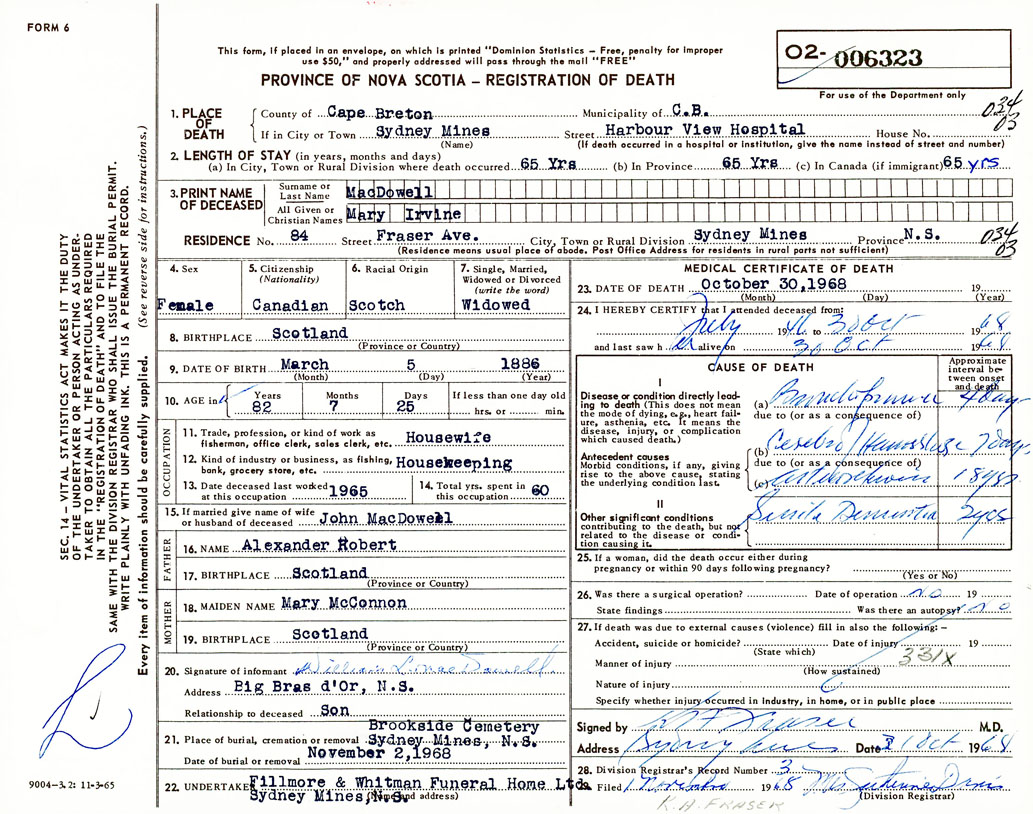 FORM 6
This form, if placed in an envelope, on which is printed "Dominion Statistics – Free, penalty for improper
use $50," and properly addressed will pass through the mail "FREE"
PROVINCE OF NOVA SCOTIA – REGISTRATION OF DEATH
02- 006323
For use of the Department only
1. PLACE OF DEATH
County of Cape Breton Municipality of C.B. 034 03
If in City or Town Sydney Mines Street Harbour View Hospital House No.
(Name) (If death occurred in a hospital or institution, give the name instead of street and number)
2. LENGTH OF STAY (in years, months and days)
(a) In City, Town or Rural Division where death occurred 65 Yrs (b) In Province 65 Yrs (c) In Canada (if immigrant) 65 yrs
3. PRINT NAME OF DECEASED
Surname or Last Name MacDowell
All Given or Christian Names Mary Irvine
RESIDENCE No. 84 Street Fraser Ave. City, Town or Rural Division Sydney Mines Province N.S. 034 03
(Residence means usual place of abode. Post Office Address for residents in rural parts not sufficient)
4. Sex
Female
5. Citizenship
(Nationality)
Canadian
6. Racial Origin
Scotch
7. Single, Married,
Widowed or Divorced
(write the word)
Widowed
8. BIRTHPLACE Scotland
(Province or Country)
9. DATE OF BIRTH March 5 1886
(Month) (Day) (Year)
10. AGE in
Years Months Days If less than one day old
82 7 25 hrs. or min.
OCCUPATION
11. Trade, profession, or kind of work as
fisherman, office clerk, sales clerk, etc. Housewife
12. Kind of industry or business, as fishing,
bank, grocery store, etc. Housekeeping
13. Date deceased last worked
at this occupation 1965
14. Total yrs. spent in
this occupation 60
15. If married give name of wife
or husband of deceased John MacDowell
FATHER
16. NAME Alexander Robert
17. BIRTHPLACE Scotland
(Province or Country)
MOTHER
18. MAIDEN NAME Mary McConnon
19. BIRTHPLACE Scotland
(Province or Country)
20. Signature of informant William L. MacDowell
Address Big Bras d'Or, N.S.
Relationship to deceased Son
Brookside Cemetery
21. Place of burial, cremation or removal Sydney Mines, N.S.
Date of burial or removal November 2,1968
22. UNDERTAKE Fillmore & Whitman Funeral Home Ltd.
Sydney Mines,N.S.
(Name and address)
MEDICAL CERTIFICATE OF DEATH
23. DATE OF DEATH October 30,1968 19
(Month) (Day) (Year)
24. I HEREBY CERTIFY that I attended deceased from:
July 19 to 30 Oct 1968
and last saw h er alive on 30 Oct 1968
CAUSE OF DEATH
Approximate
interval be-
tween onset
and death
I
Disease or condition directly lead-
ing to death (This does not mean
the mode of dying, e.g., heart fail-
ure, asthenia, etc. It means the
disease, injury, or complication
which caused death.)
(a) 4 day
due to (or as a consequence of)
Antecedent causes
Morbid conditions, if any, giving
rise to the above cause, stating
the underlying condition last.
(b) Cerebral Hemorrhage 7 days
due to (or as a consequence of)
(c) 18 yrs
II
Other significant conditions
contributing to the death, but not
related to the disease or condi-
tion causing it.
Senile Dementia 2 yrs
25. If a woman, did the death occur either during
pregnancy or within 90 days following pregnancy?
(Yes or No)
26. Was there a surgical operation? Date of operation NO 19
State findings Was there an autopsy? NO
27. If death was due to external causes (violence) fill in also the following: –
Accident, suicide or homicide? Date of injury 19
(State which)
331X
Manner of injury
(How sustained)
Nature of injury
Specify whether injury occurred in Industry, in home, or in public place
Signed by Fraser M.D.
Address Sydney Mines Date 31 Oct 1968
28. Division Registrar's Record Number 3
Filed 1 November 1968 Mrs Davis
(Division Registrar)
K.A. FRASER
SEC. 14 – VITAL STATISTICS ACT MAKES IT THE DUTY
OF THE UNDERTAKER OR PERSON ACTING AS UNDER-
TAKER TO OBTAIN ALL THE PARTICULARS REQUIRED
IN THE "REGISTRATION OF DEATH" AND TO FILE THE
SAME WITH THE DIVISION REGISTRAR WHO SHALL ISSUE THE BURIAL PERMIT.
WRITE PLAINLY WITH UNFADING INK. THIS IS A PERMANENT RECORD.
Every item of information should be carefully supplied. (See reverse side for instructions.)
9004–3.2: 11-3-65